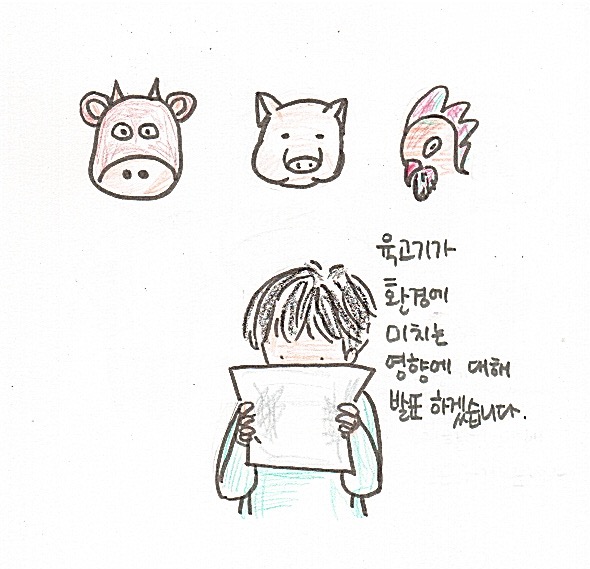 육고기가
환경에
미치는
영향에 대해
발표 하겠습니다.